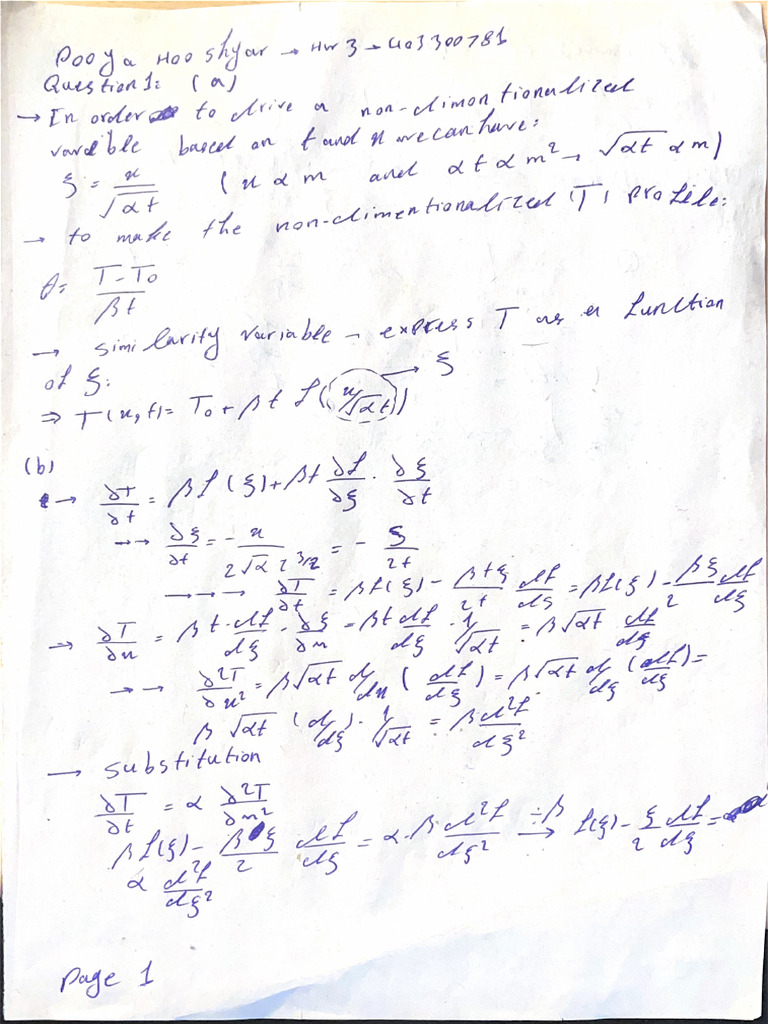 Pooya Hooshyar → Hw 3 → 403300781
Question 1: (a)
→ In order to drive a non-dimontionalized
varible based on t and x we can have:
ξ = x/√αt (x α m and αt α m² → √αt α m)
→ to make the non-dimentionalized (T) profile:
θ = (T - T₀)/βt
→ similarity variable → express T as a function
of ξ:
⇒ T(x,t) = T₀ + βt f(x/√αt) → ξ
(b)
→ ∂T/∂t = βf(ξ) + βt ∂f/∂ξ · ∂ξ/∂t
→→ ∂ξ/∂t = -x/(2√α t^3/2) = - ξ/2t
→→→ ∂T/∂t = βf(ξ) - βtξ/2t df/dξ = βf(ξ) - βξ/2 df/dξ
→ ∂T/∂x = βt · df/dξ · ∂ξ/∂x = βt df/dξ · 1/√αt = β√αt df/dξ
→→ ∂²T/∂x² = β√αt d/dx (df/dξ) = β√αt d/dξ (df/dξ) =
β √αt (d/dξ) · 1/√αt = β d²f/dξ²
→ substitution
∂T/∂t = α ∂²T/∂x²
βf(ξ) - βξ/2 df/dξ = α·β d²f/dξ² →(÷β) f(ξ) - ξ/2 df/dξ =
α d²f/dξ²
Page 1